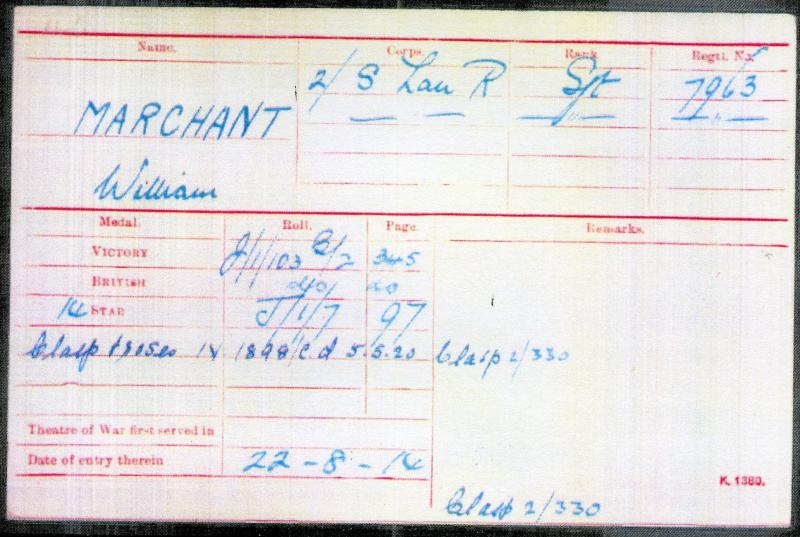 Name. Corps. Rank Regtl. No.
MARCHANT 2/ S Lan R Sjt 7963
William — " — — " — — " —
Medal. Roll. Page Remarks.
VICTORY J/1/103 B/2 345
BRITISH do do
14 STAR J/1/7 97
Clasp & roses IV 1898/C. d 5.5.20 Clasp 2/330
Theatre of War first served in
Date of entry therein 22 - 8 - 14
K. 1380.
Clasp 2/330